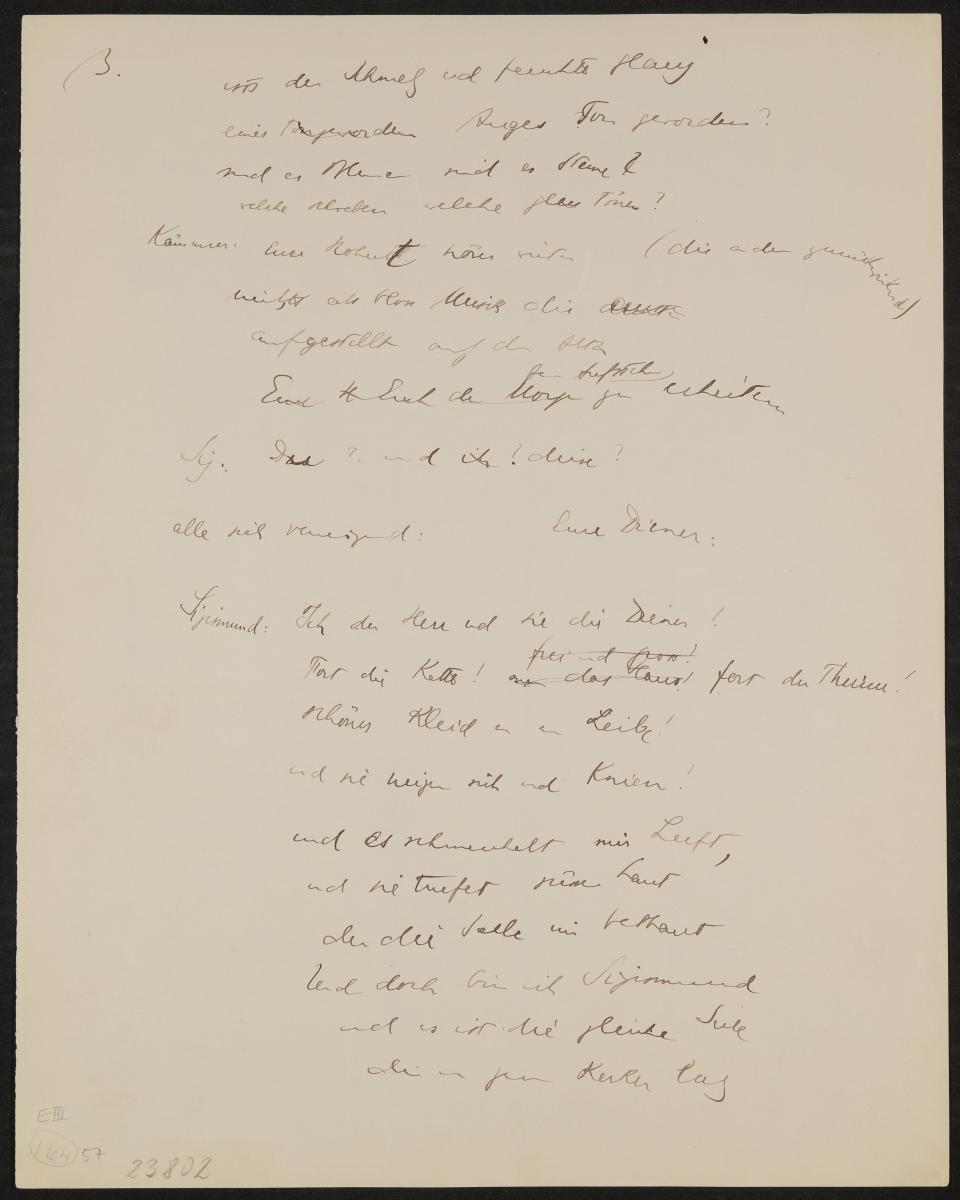 3.
ist der Schmelz und feuchte Glanz
eines Auges Ton geworden?
sind es Blume sind es Sterne?
welche schweben welche Töne?
Kämmerer: Eure Hoheit hören (die andern zurückwinkend)
nichts als bloss Musik die
aufgestellt auf der
Eure H Euch den Morgen zu erheitern
Sig. Das? und ihr! diese?
alle sich verneigend: Eure Diener:
Sigismund: Ich der Herr und sie die Diener!
frei und gross!
Fort die Kette! das Haus! fort der Thurm!
schönes Kleid an Leibe!
und sie neigen sich und Knien!
und es schmeichelt mir Luft,
und sie süsse Laut
der die Seele mir bethaut
Und doch bin ich Sigismund
und es ist die gleiche Seele
die in jenem Kerker lag
E III
164 57
23802